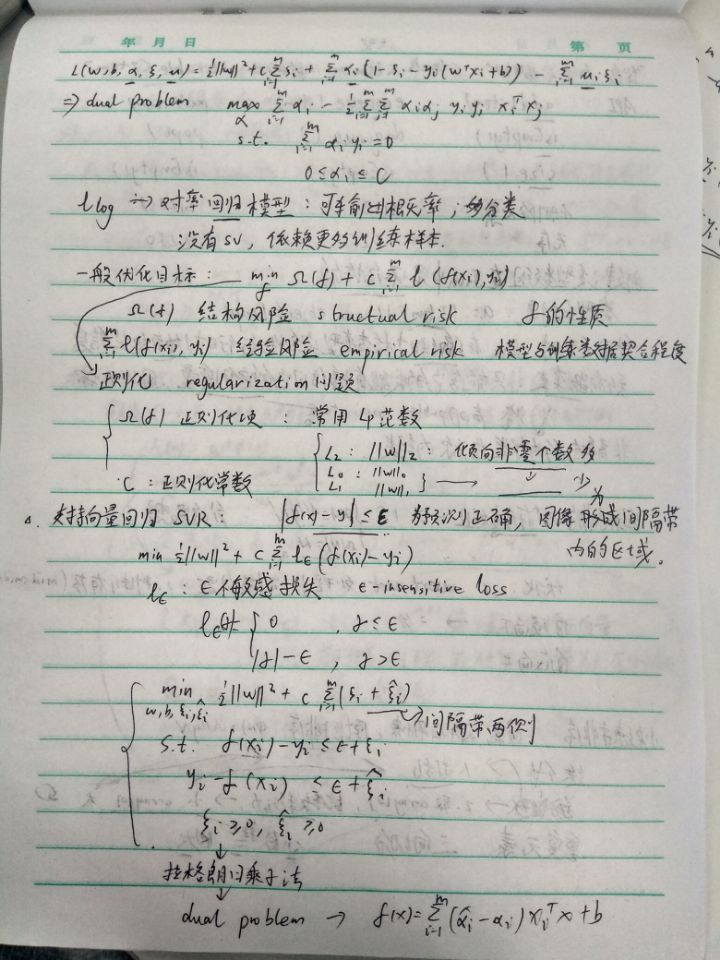 年 月 日 第 页
L(w,b,α,ξ,μ) = ½||w||² + C∑ᵢ₌₁ᵐ ξᵢ + ∑ᵢ₌₁ᵐ αᵢ(1-ξᵢ-yᵢ(wᵀxᵢ+b)) - ∑ᵢ₌₁ᵐ μᵢξᵢ
⇒ dual problem max_α ∑ᵢ₌₁ᵐ αᵢ - ½∑ᵢ₌₁ᵐ∑ⱼ₌₁ᵐ αᵢαⱼ yᵢyⱼ xᵢᵀxⱼ
s.t. ∑ᵢ₌₁ᵐ αᵢyᵢ=0
0≤αᵢ≤C
l log → 对率回归模型：可输出概率，多分类
没有SV，依赖更多训练样本.
一般优化目标： min_f Ω(f) + C∑ᵢ₌₁ᵐ l(f(xᵢ),yᵢ)
Ω(f) 结构风险 structual risk f的性质
∑ᵢ₌₁ᵐ l(f(xᵢ),yᵢ) 经验风险 empirical risk 模型与训练数据契合程度
正则化 regularization 问题
Ω(f) 正则化项： 常用 Lp范数
L₂：||w||₂：倾向非零个数多
C：正则化常数 L₀：||w||₀
L₁ ||w||₁ → 少
支持向量回归 SVR： |f(x)-y| ≤ ε 为预测正确，图像形成间隔带
内的区域。
min ½||w||² + C∑ᵢ₌₁ᵐ lε(f(xᵢ)-yᵢ)
lε：ε不敏感损失 ε-insensitive loss
lε { 0 , f≤ε
|f|-ε , f>ε
min_{w,b,ξᵢ,ξ̂ᵢ} ½||w||² + C∑ᵢ₌₁ᵐ(ξᵢ+ξ̂ᵢ)
→ 间隔带两侧
s.t. f(xᵢ)-yᵢ≤ε+ξᵢ
yᵢ-f(xᵢ) ≤ε+ξ̂ᵢ
ξᵢ≥0, ξ̂ᵢ≥0
拉格朗日乘子法
dual problem → f(x)=∑ᵢ₌₁ᵐ(α̂ᵢ-αᵢ)xᵢᵀx+b